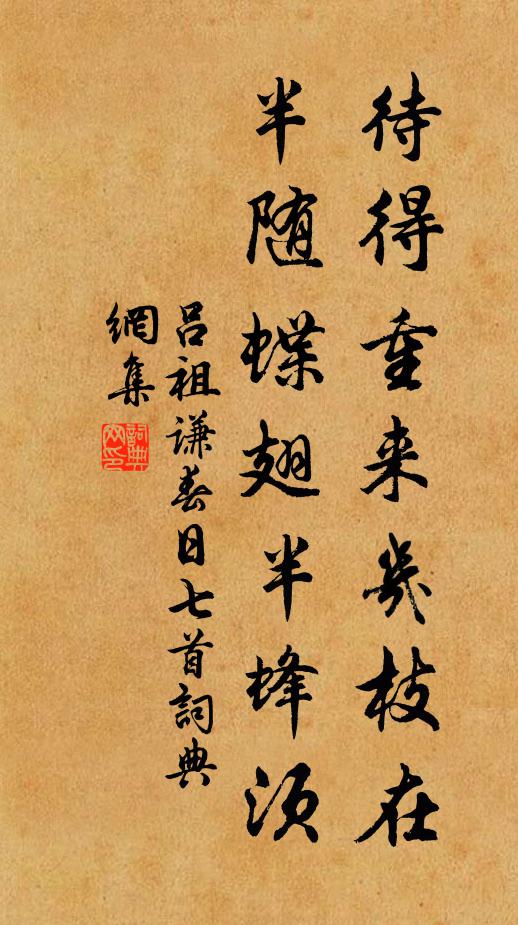 待得重来幾枝在
半随蝶翅半蜂须
吕祖谦春日七首詞典
網集
詞典網印